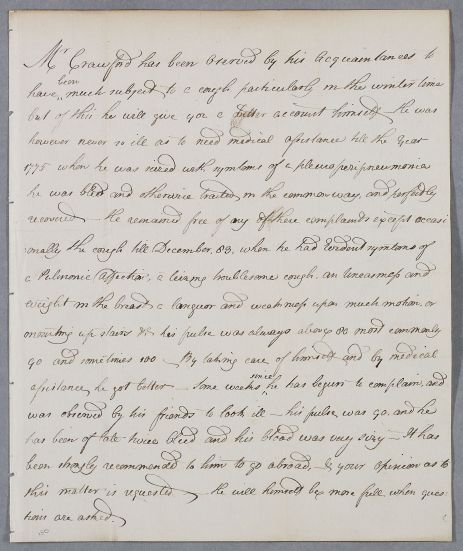 Mr Crawford has been oserved by his Acquaintances to
have been much subject to a cough particularly in the winter time
but of this he will give you a better account himself He was
however never so ill as to need medical assistance till the year
1775 when he was seized with symtoms of a pleuroperipneumonia
he was bled and otherwise treated in the common way, and perfectly
recovered He remained free of any of these complaints except occasi
onally the cough till December, 83, when he had evident symtoms of
a Pulmonic affection, a teizing troublesome cough, an uneasiness and
weight in the breast a languor and weakness upon much motion or
mounting up stairs &c his pulse was always above 80 most commonly
90 and sometimes 100 — By taking care of himself and by medical
assistance he got better — some weeks since he has begun to complain, and
was observed by his friends to look ill — his pulse was 90, and he
has been of late twice bleed and his blood was very sizy — It has
been strongly recommended to him to go abroad — & your opinion as to
this matter is requested — He will himself be more full when ques
tions are asked.